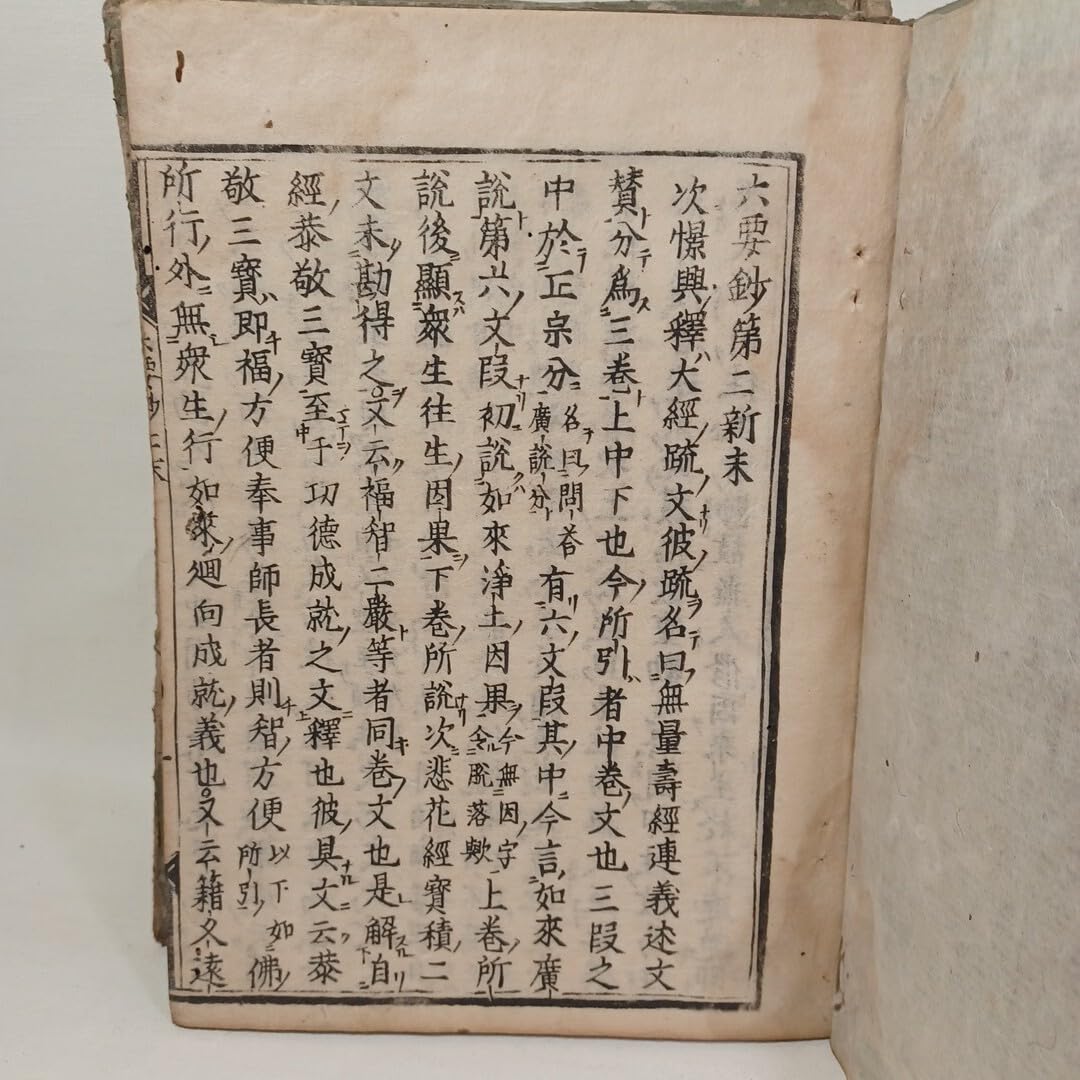 六要鈔第二新末
次憬興釋大經疏文彼疏名曰無量壽經連義述文
贊分爲三卷上中下也今所引者中卷文也三段之
中於正宗分名曰問答廣說分有六文段其中今言如來廣
說第六文段初說如來淨土因果今無因字令脫落歟上卷所
說後顯衆生往生因果下卷所說次悲花經寶積二
文末勘得之又云福智二嚴等者同卷文也是解自
經恭敬三寶至于功德成就之文釋也彼具文云恭
敬三寶即福方便奉事師長者則智方便以下如所引佛
所行外無衆生行如來迴向成就義也又云籍久遠